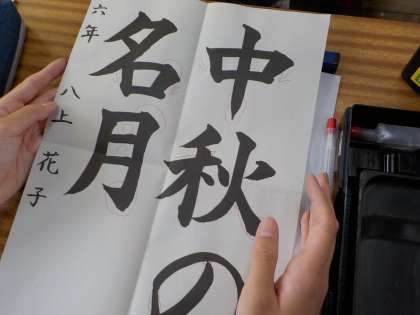 中秋の
名月
六年 八上 花子